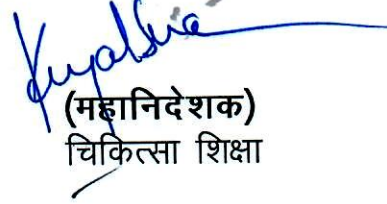 (महानिदेशक)
चिकित्सा शिक्षा